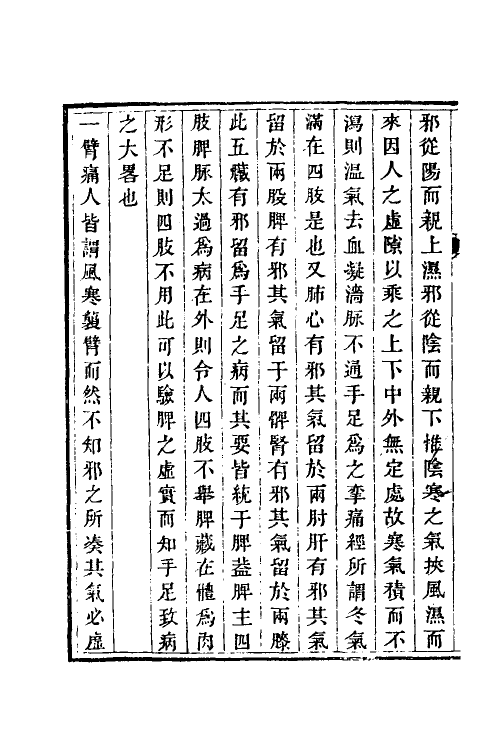 邪從陽而親上濕邪從陰而親下惟陰寒之氣挾風濕而
來因人之虛隙以乘之上下中外無定處故寒氣積而不
瀉則温氣去血凝濇脉不通手足爲之攣痛經所謂冬氣
滿在四肢是也又肺心有邪其氣留於兩肘肝有邪其氣
留於兩股脾有邪其氣留于兩髀腎有邪其氣留於兩膝
此五臟有邪留爲手足之病而其要皆統于脾葢脾主四
肢脾脉太過爲病在外則令人四肢不舉脾藏在體爲肉
形不足則四肢不用此可以驗脾之虛實而知手足致病
之大畧也
一臂痛人皆謂風寒襲臂而然不知邪之所凑其氣必虛